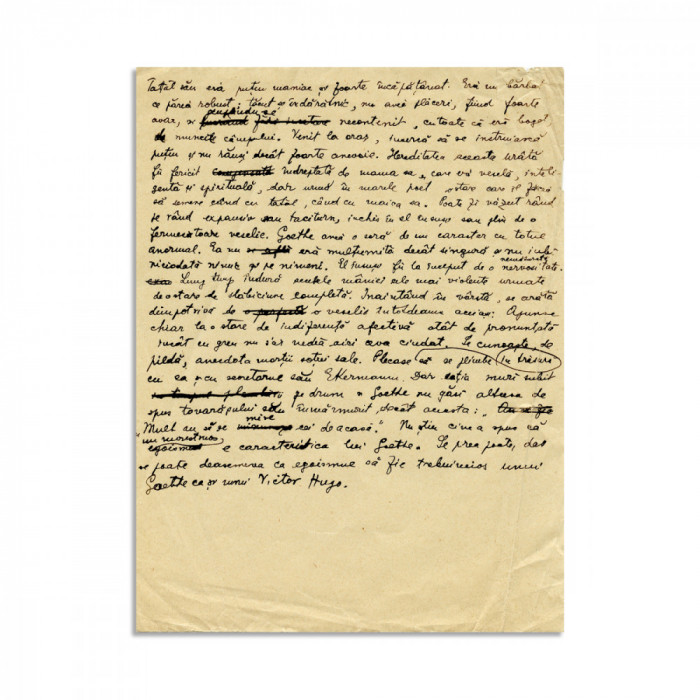 Tatăl său eră puțin maniac și foarte încăpățânat. Eră un bărbat
ce părea robust, tăcut și îndărătnic, nu avea plăceri, fiind foarte
avar, și necontenit, cu toate că eră bogat
de muncile câmpului. Venit la oraș, încercă să se instruiască
puțin și nu reuși decât foarte anevoie. Hereditatea aceasta urâtă
fu fericit îndreptată de mama sa, care eră veselă, inteli-
gentă și spirituală, dar urmă în marele poet o stare care îl făcea
să semene când cu tatăl, când cu maica sa. Poate fi văzut rând
pe rând expansiv sau taciturn, închis în el însuși sau plin de o
fermecătoare veselie. Goethe avea o soră de un caracter cu totul
anormal. Ea nu eră mulțumită decât singură și nu iubi
niciodată nimic și pe nimeni. El însuși fu la început de o nemaiîntâlnită nervozitate.
Lung timp îndură accesele mâniei cele mai violente urmate
de o stare de slăbiciune completă. Înaintând în vârstă, se arată
dimpotrivă de o veselie întotdeauna aceiași. Ajunse
chiar la o stare de indiferență afectivă atât de pronunțată
încât cu greu nu s'ar vedeà aici ceva ciudat. Se cunoaște, de
pildă, anecdota morții soției sale. Plecase să se plimbe în trăsură
cu ea și cu secretarul său Ekermann. Dar soția muri subit
pe drum și Goethe nu găsi altceva de
spus tovarășului său înmărmurit, decât aceasta: „
Mult au să se mire cei de acasă." Nu știu cine a spus că
"un monstruos egoism" e caracteristica lui Goethe. Se prea poate, dar
se poate deasemenea ca egoismul să fie trebuincios unui
Goethe ca și unui Victor Hugo.